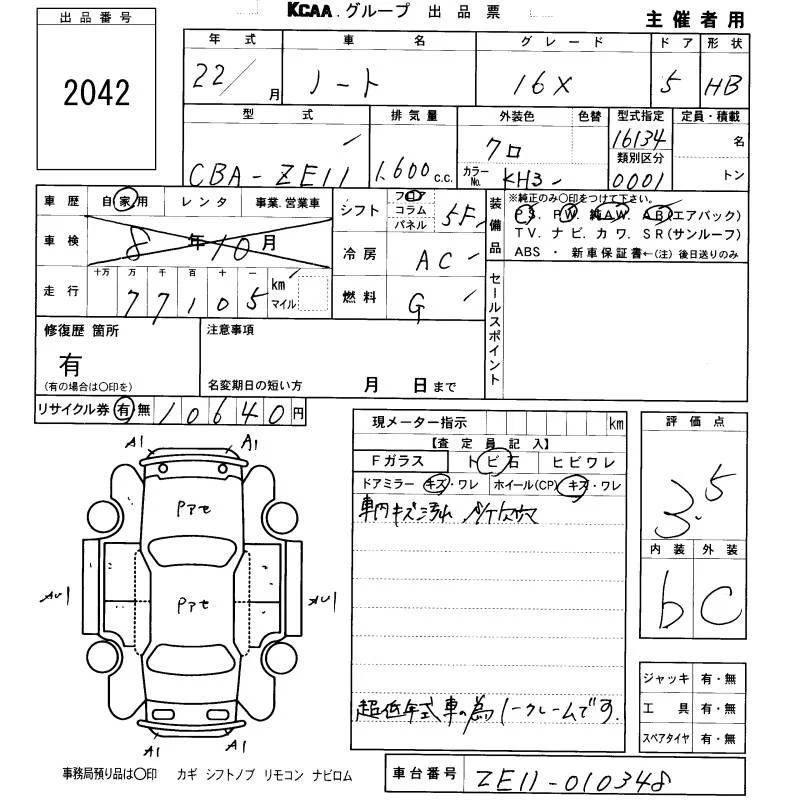 KCAA.グループ 出品票
主催者用
出品番号
2042
年式 車名 グレード ドア 形状
22/ 月 ノート 16X 5 HB
型式 排気量 外装色 色替 型式指定 定員・積載
CBA-ZE11 1,600 c.c. クロ 16134 名
カラーNo. KH3 類別区分 0001 トン
車歴 自家用 レンタ 事業.営業車
車検 8年10月
走行 十万 万 千 百 十 一 km マイル
77105
シフト フロア コラム パネル 5F
冷房 AC
燃料 G
装備品 ※純正のみ〇印をつけて下さい。
P.S. P.W. 純A.W. A.B(エアバック)
T.V. ナビ. カワ. S.R(サンルーフ)
ABS ・ 新車保証書←(注)後日送りのみ
セールスポイント
修復歴 箇所
有
(有の場合は〇印を)
注意事項
名変期日の短い方 月 日まで
リサイクル券 有 無 10640円
現メーター指示 km
【査定員記入】
Fガラス トビ石 ヒビワレ
ドアミラー キズ・ワレ ホイール(CP) キズ・ワレ
車内キズ
超低年式車の為ノークレームです.
評価点
3.5
内装 外装
b C
ジャッキ 有・無
工具 有・無
スペアタイヤ 有・無
A1 A1
Pアセ
Pアセ
AU1 AU1
A1 A1
事務局預り品は〇印 カギ シフトノブ リモコン ナビロム
車台番号 ZE11-010348